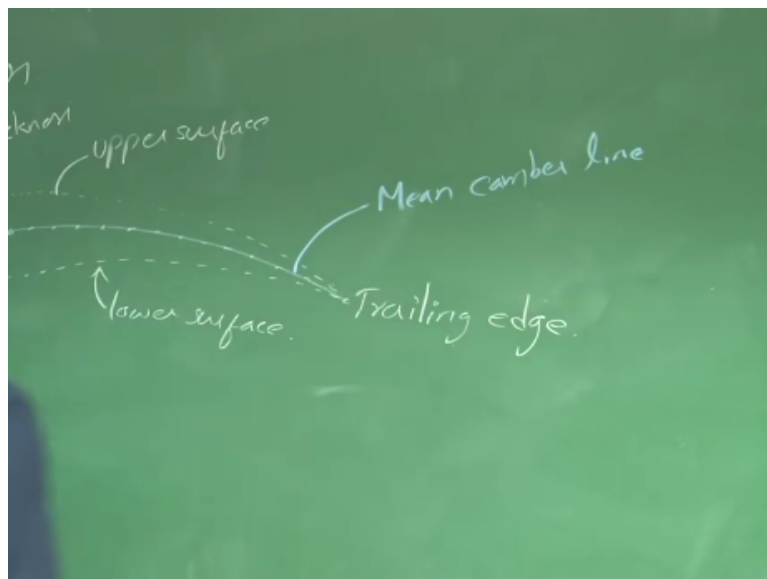 upper surface
Mean camber line
lower surface.
Trailing edge.